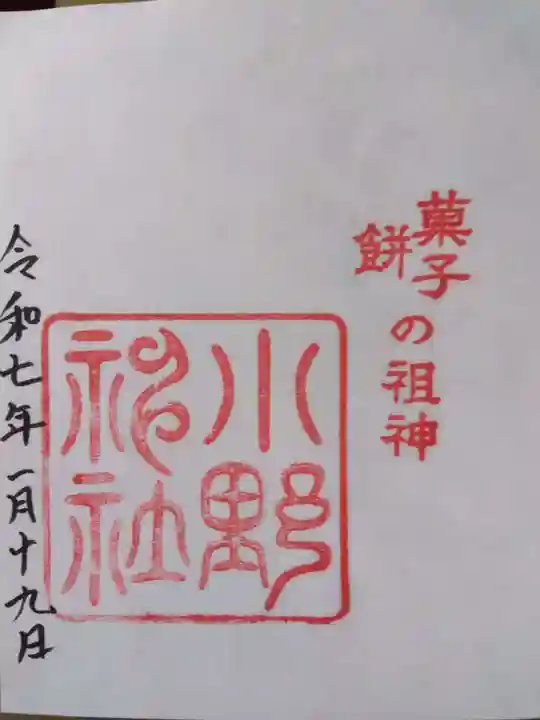 菓子
餅
の祖神
小野
神社
令和七年一月十九日